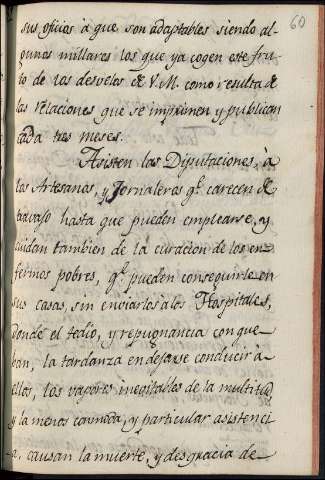 60
sus oficios à que son adaptables siendo al-
gunos millares los que ya cogen este fru-
to de los desvelos de V.M. como resulta de
las relaciones que se imprimen y publican
cada tres meses.
Asisten las Diputaciones, à
los Artesanos, y Jornaleros q.e carecen de
travajo hasta que pueden emplearse, y
cuidan tambien de la curacion de los en-
fermos pobres, q.e pueden conseguirle en
sus casas, sin enviarlos à los Hospitales,
donde el tedio, y repugnancia con que
van, la tardanza en dejarse conducir à
ellos, los vapores inevitables de la multitud
y la menos comoda, y particular asistenci
a, causan la muerte, y desgracia de